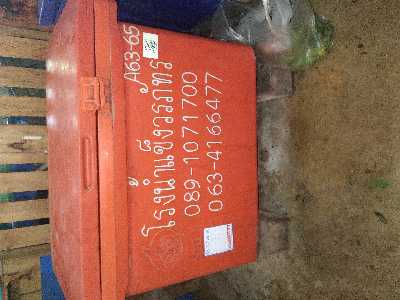 A63-65
โรงน้ำแข็งวรภัทร
089-1071700
063-4166477